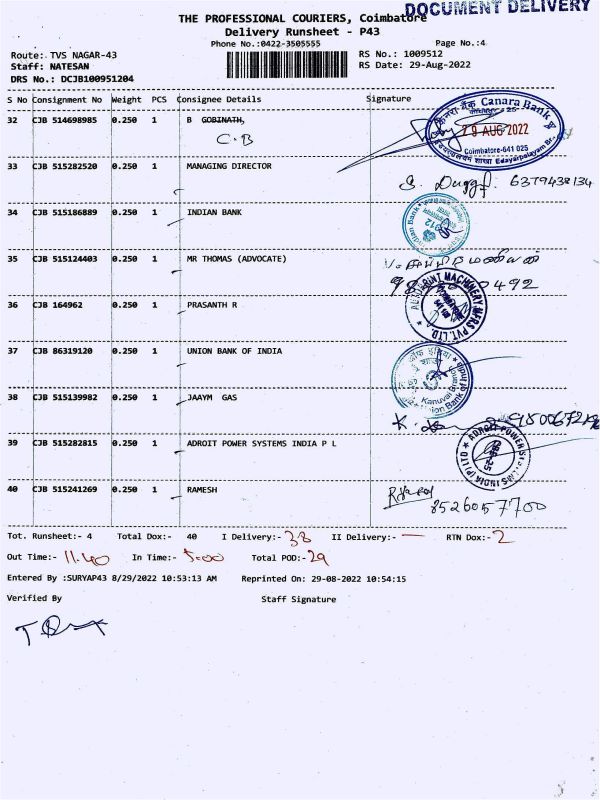 DOCUMENT DELIVERY
THE PROFESSIONAL COURIERS, Coimbatore
Delivery Runsheet - P43
Phone No.:0422-3505555 Page No.:4
Route: TVS NAGAR-43 RS No.: 1009512
Staff: NATESAN RS Date: 29-Aug-2022
DRS No.: DCJB100951204
S No Consignment No Weight PCS Consignee Details Signature
32 CJB 514698985 0.250 1 B GOBINATH,
C.B
Canara Bank
29 AUG 2022
Coimbatore-641 025
33 CJB 515282520 0.250 1 MANAGING DIRECTOR
6379438134
34 CJB 515186889 0.250 1 INDIAN BANK
Indian Bank
35 CJB 515124403 0.250 1 MR THOMAS (ADVOCATE)
0492
36 CJB 164962 0.250 1 PRASANTH R
MACHINERY MFRS PVT. LTD.
37 CJB 86319120 0.250 1 UNION BANK OF INDIA
Kanuvai Branch
Union Bank of India
38 CJB 515139982 0.250 1 JAAYM GAS
39 CJB 515282815 0.250 1 ADROIT POWER SYSTEMS INDIA P L
ADROIT POWER SYSTEMS INDIA (P) LTD
CBE-25
40 CJB 515241269 0.250 1 RAMESH
8526057700
Tot. Runsheet:- 4 Total Dox:- 40 I Delivery:- 38 II Delivery:- — RTN Dox:- 2
Out Time:- 11.40 In Time:- 5.00 Total POD:- 29
Entered By :SURYAP43 8/29/2022 10:53:13 AM Reprinted On: 29-08-2022 10:54:15
Verified By Staff Signature